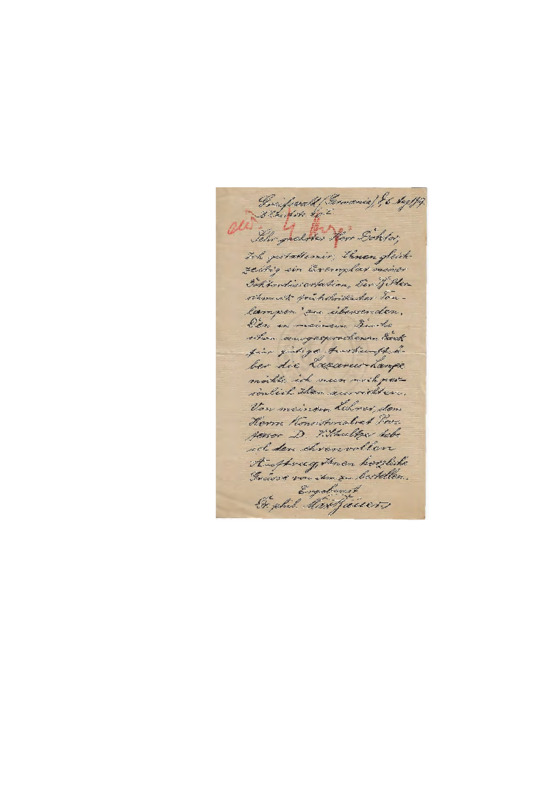 Greifswald (Germania), 5. Aug. 07.
Sehr geehrter Herr Doktor,
Ich gestatte mir, Ihnen gleich-
zeitig ein Exemplar meiner
Doktordissertation, Der Bilder-
schmuck frühchristlicher Ton-
lampen" zu übersenden.
Den in meinem Buche
schon ausgesprochenen Dank
für gütige Auskunft ü-
ber die Lazarus-Lampe
möchte ich nun noch per-
sönlich Ihnen aussprechen.
Von meinem Lehrer, dem
Herrn Konsistorialrat Pro-
fessor D. V. Schultze habe
ich den ehrenvollen
Auftrag, Ihnen herzliche
Grüsse von ihm zu bestellen.
Ergebenst
Dr. phil. Bauer